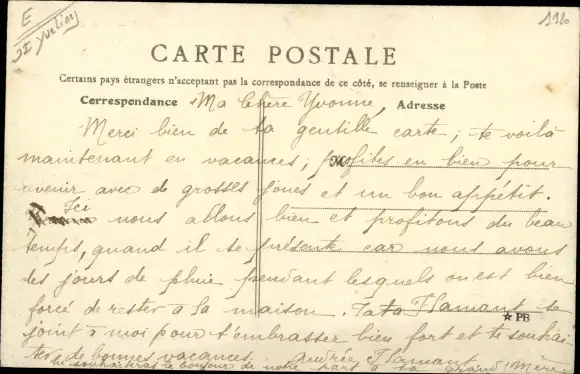 E
Yvelines
1120
CARTE POSTALE
Certains pays étrangers n'acceptent pas la correspondance de ce côté, se renseigner à la Poste
Correspondance Ma Chère Yvonne, Adresse
Merci bien de ta gentille carte ; te voilà
maintenant en vacances ; profites en bien pour
revenir avec de grosses joues et un bon appétit.
Ici nous allons bien et profitons du beau
temps, quand il se présente car nous avons
des jours de pluie pendant lesquels on est bien
forcé de rester à la maison. Tata Flamant se
☆ PB
joint à moi pour t'embrasser bien fort et te souhai
ter de bonnes vacances. Andrée Flamant
tu souhaiteras le bonjour de notre part à ta grand' Mère.